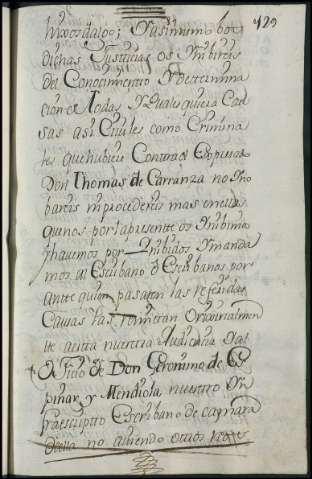 129
dichas Justicias os Inibireis
del Conocimiento Y determina
cion de todas Y qualesquiera Cau
sas asi Ciuiles como Crimina
les que hubiere Contra el
Don Thomas de Carranza no In
bareis ni procedereis mas en ellas
que nos por la presente os Inibimos
y hauemos por Inibidos Y manda
mos al Escribano o Escribanos por
ante quien pasaren las referidas
Causas las remitan Originalmen
te ante nuestra Audiencia Y al
oficio de Don Geronimo de Es
pinar y Mendiola nuestro In
fraescripto Escribano de camara
della no auiendo otros